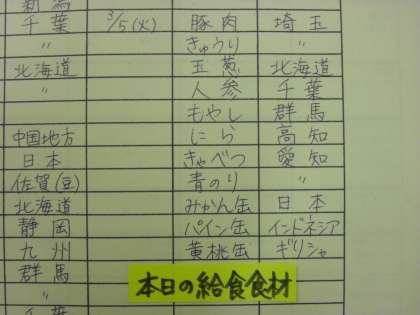 新潟
千葉 3/5(火) 豚肉 埼玉
〃 きゅうり 〃
北海道 玉葱 北海道
〃 人参 千葉
もやし 群馬
中国地方 にら 高知
日本 きゃべつ 愛知
佐賀(豆) 青のり 〃
北海道 みかん缶 日本
静岡 パイン缶 インドネシア
九州 黄桃缶 ギリシャ
群馬
本日の給食食材
〃
千葉